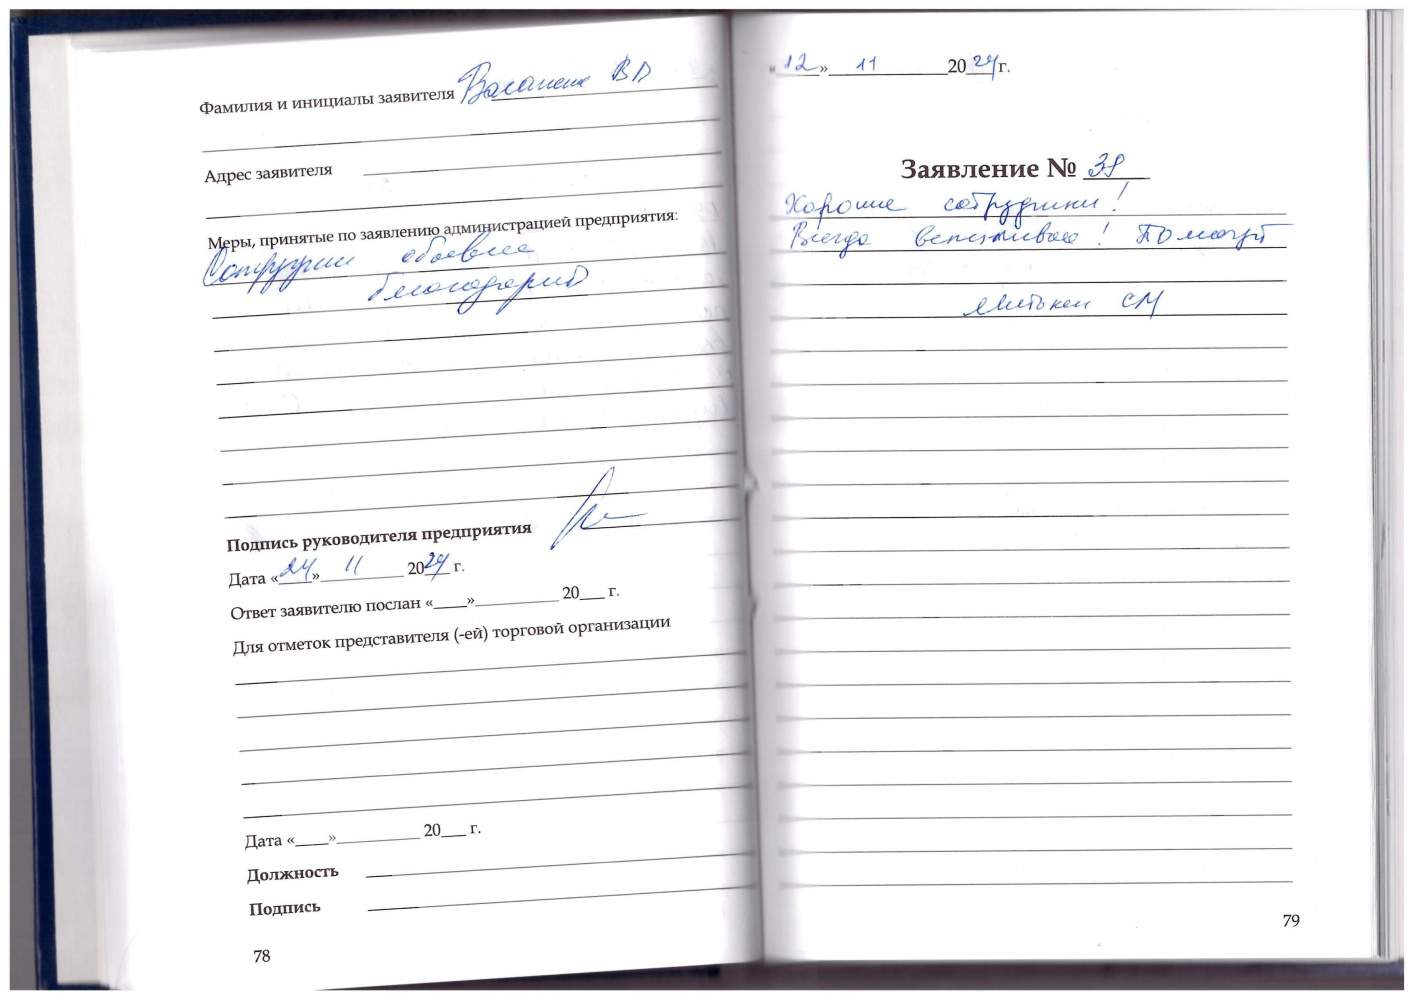 Фамилия и инициалы заявителя ВД
Адрес заявителя
Меры, принятые по заявлению администрацией предприятия:
Подпись руководителя предприятия
Дата «24» 11 2024 г.
Ответ заявителю послан «____»__________ 20___ г.
Для отметок представителя (-ей) торговой организации
Дата «____»__________ 20___ г.
Должность
Подпись
78
«12» 11 2024 г.
Заявление № 39
Хорошие сотрудники!
Всегда вежливые! Помогут
СМ
79